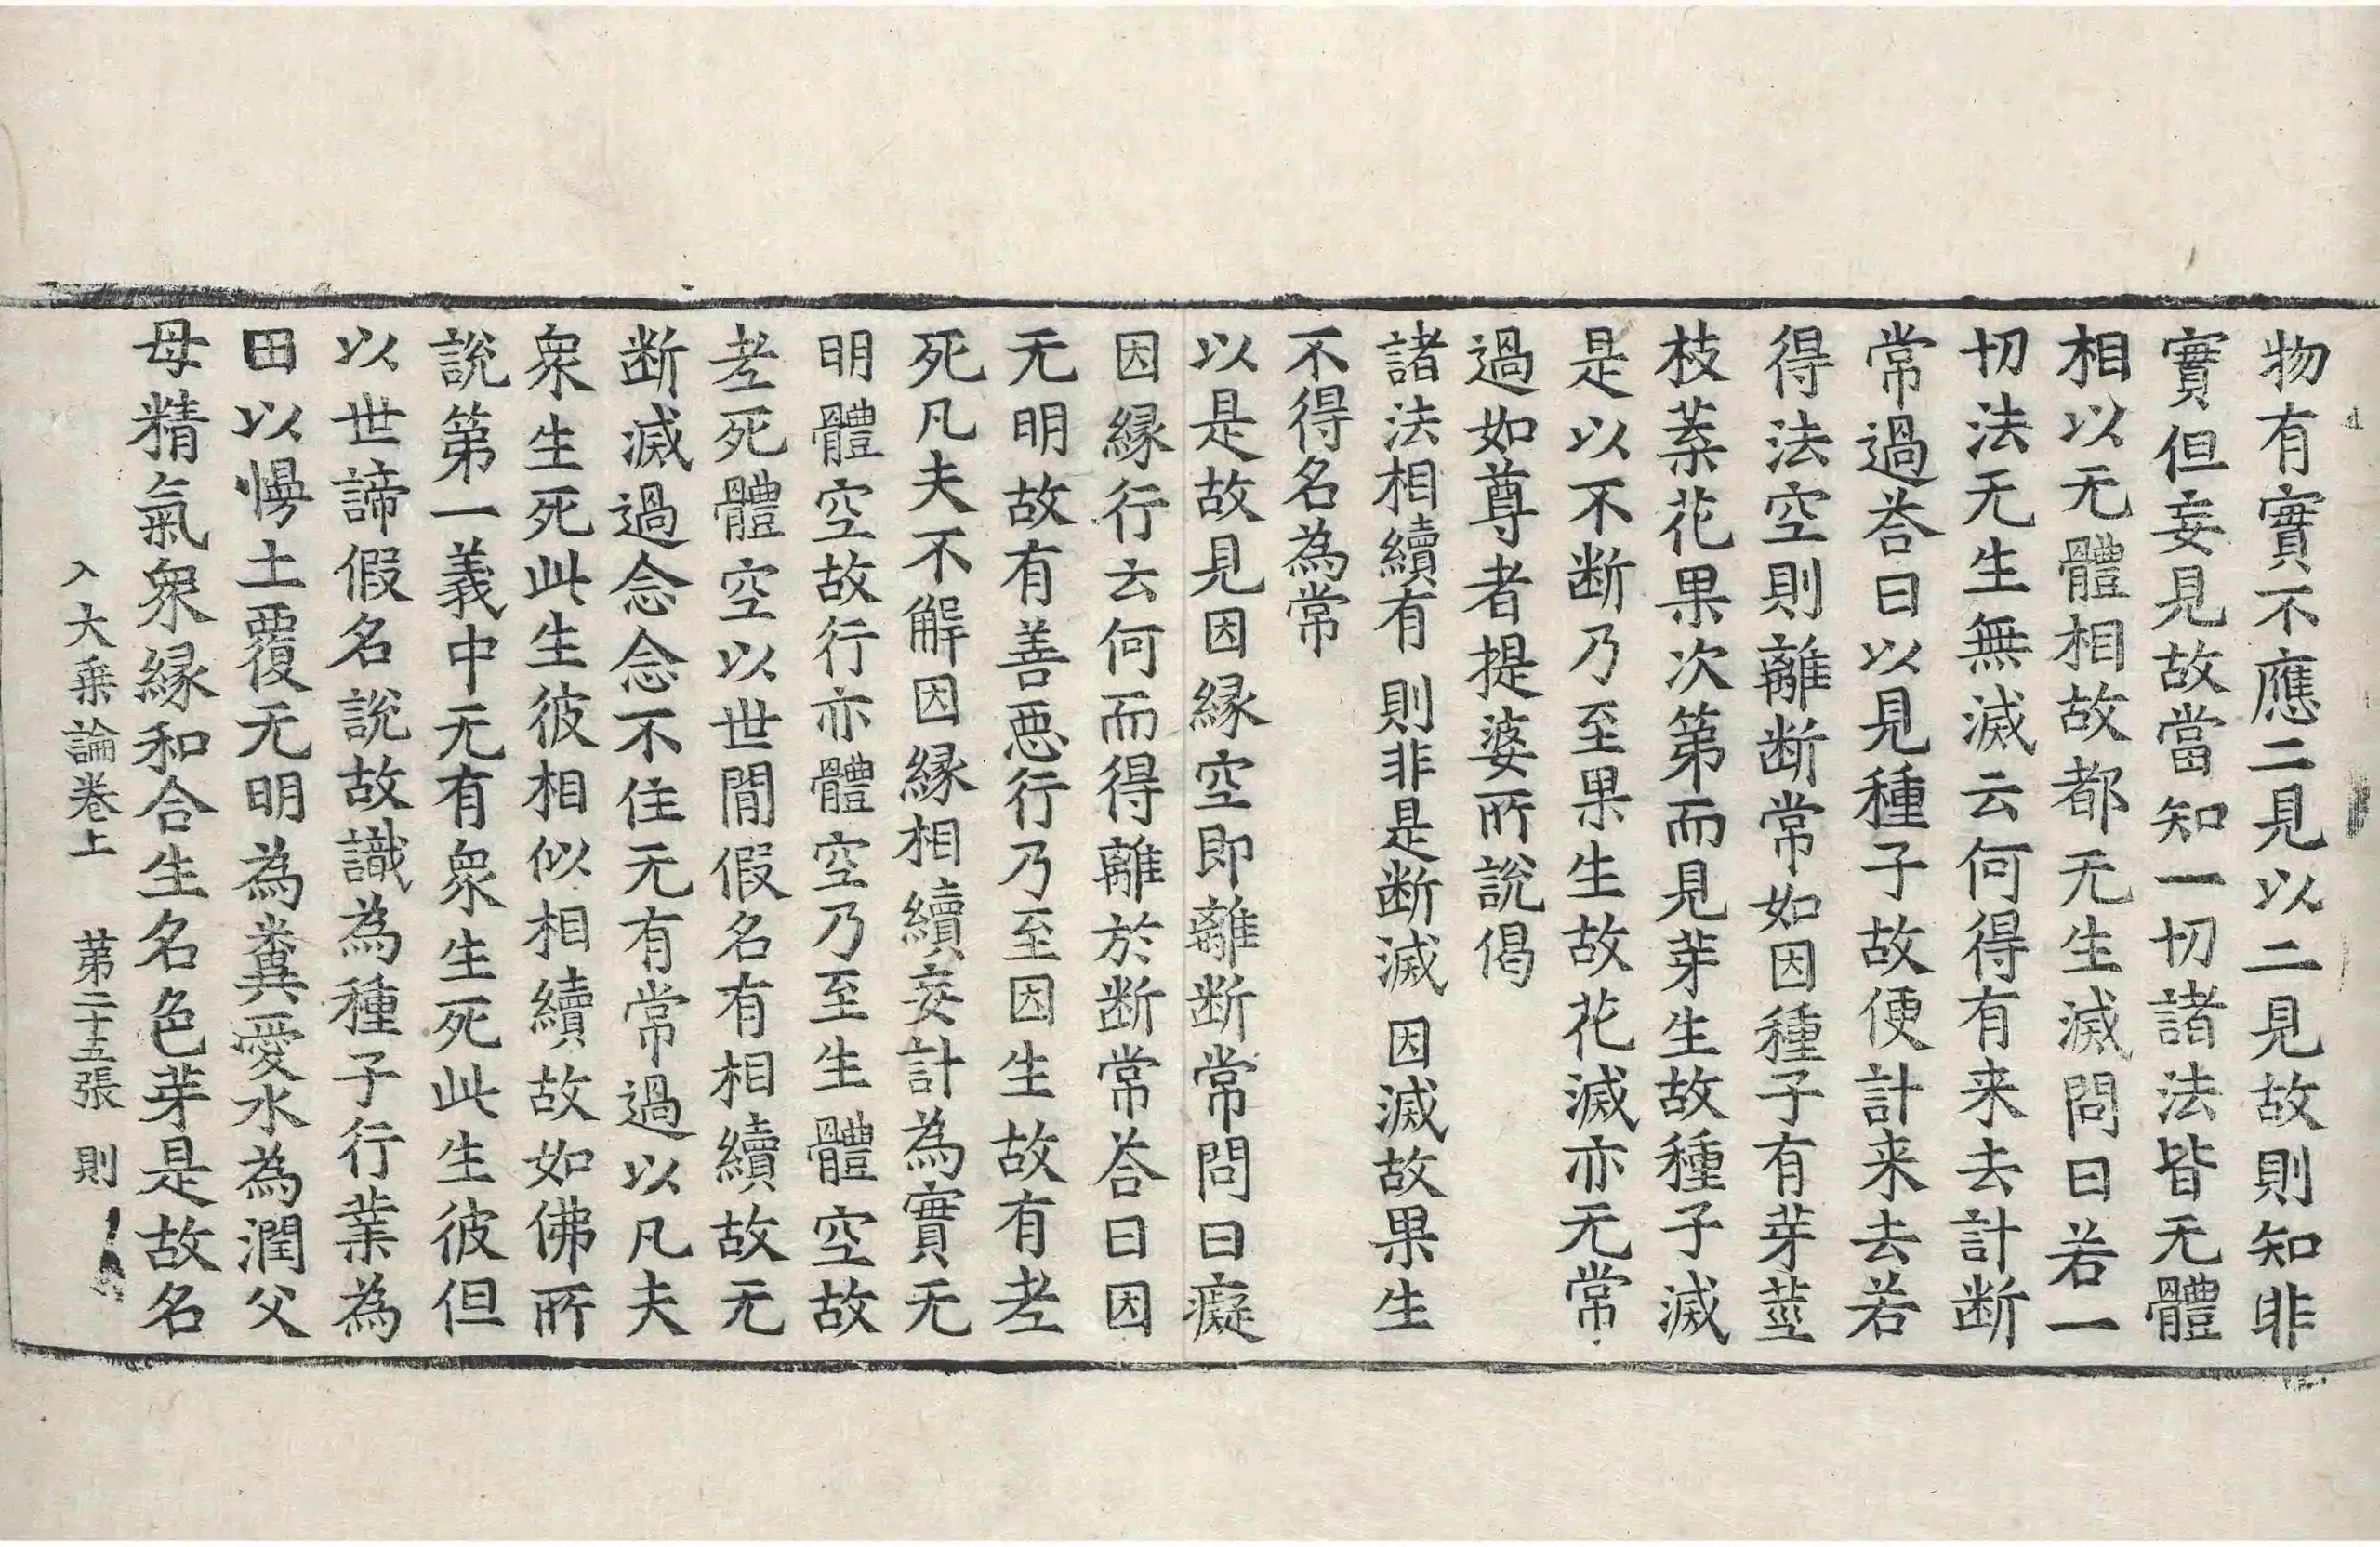 物有實不應二見以二見故則知非
實但妄見故當知一切諸法皆无體
相以无體相故都无生滅問曰若一
切法无生無滅云何得有来去計断
常過荅曰以見種子故便計来去若
得法空則離断常如因種子有芽莖
枝葉花果次第而見芽生故種子滅
是以不断乃至果生故花滅亦无常
過如尊者提婆所說偈
諸法相續有 則非是断滅 因滅故果生
不得名為常
以是故見因縁空即離断常問曰癡
因縁行云何而得離於断常荅曰因
无明故有善惡行乃至因生故有老
死凡夫不解因縁相續妄計為實无
明體空故行亦體空乃至生體空故
老死體空以世間假名有相續故无
断滅過念念不住无有常過以凡夫
衆生死此生彼相似相續故如佛所
說第一義中无有衆生死此生彼但
以世諦假名說故識為種子行業為
田以慢土覆无明為糞愛水為潤父
母精氣衆縁和合生名色芽是故名
入大乗論卷上 第二十五張 則